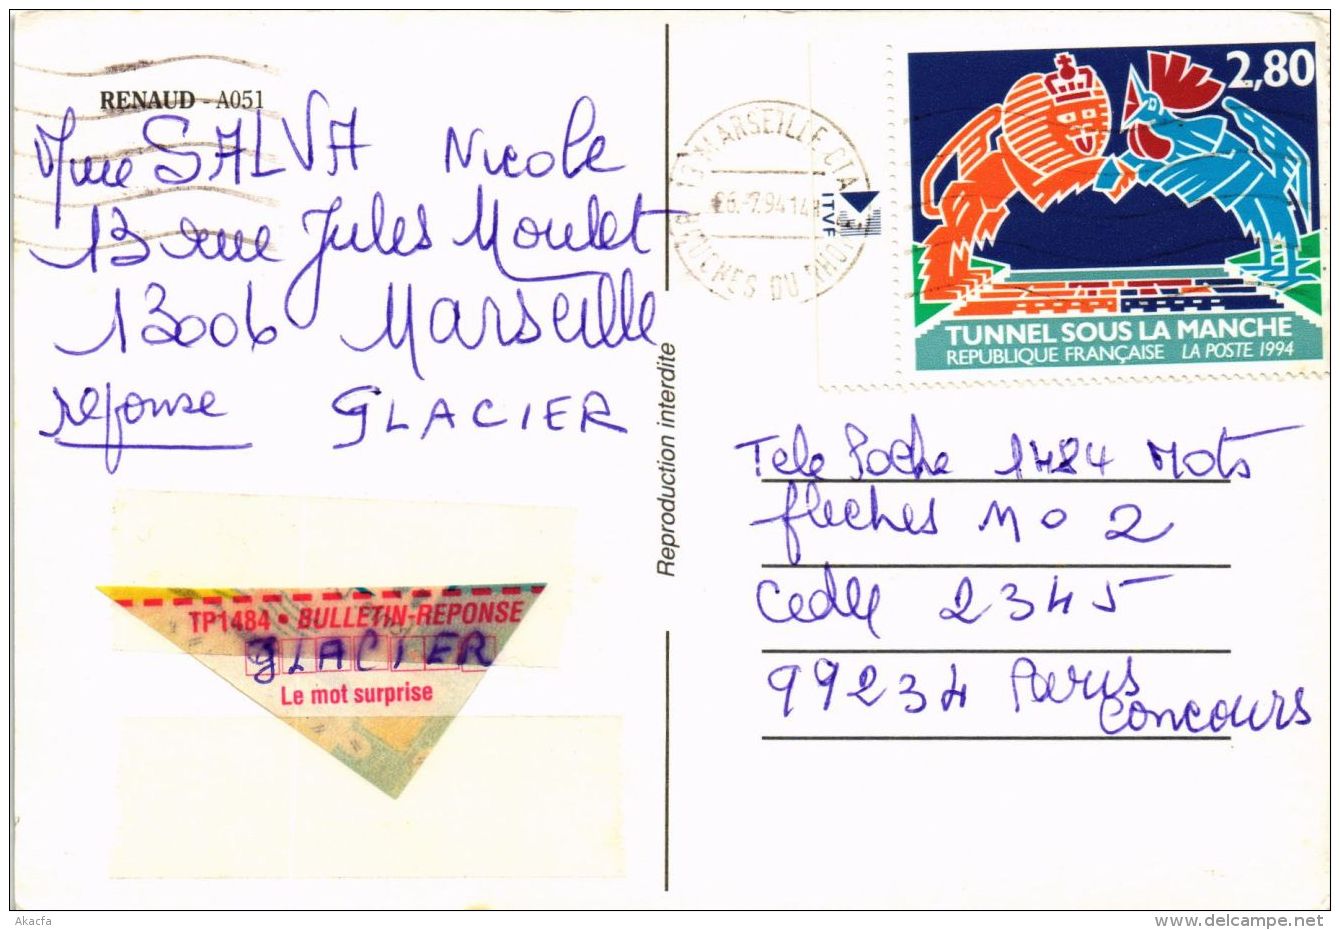 RENAUD - A051
Mme SALVA Nicole
13 rue Jules Moulet
13006 Marseille
réponse GLACIER
TP1484 • BULLETIN-REPONSE
GLACIER
Le mot surprise
Reproduction interdite
13 MARSEILLE CTA
7.94 14
BOUCHES DU RHONE
ITVF
2,80
TUNNEL SOUS LA MANCHE
REPUBLIQUE FRANÇAISE LA POSTE 1994
Tele Poche 1484 Mots
fleches no 2
Cedex 2345
99234 Paris
Concours
Akacfa
www.delcampe.net